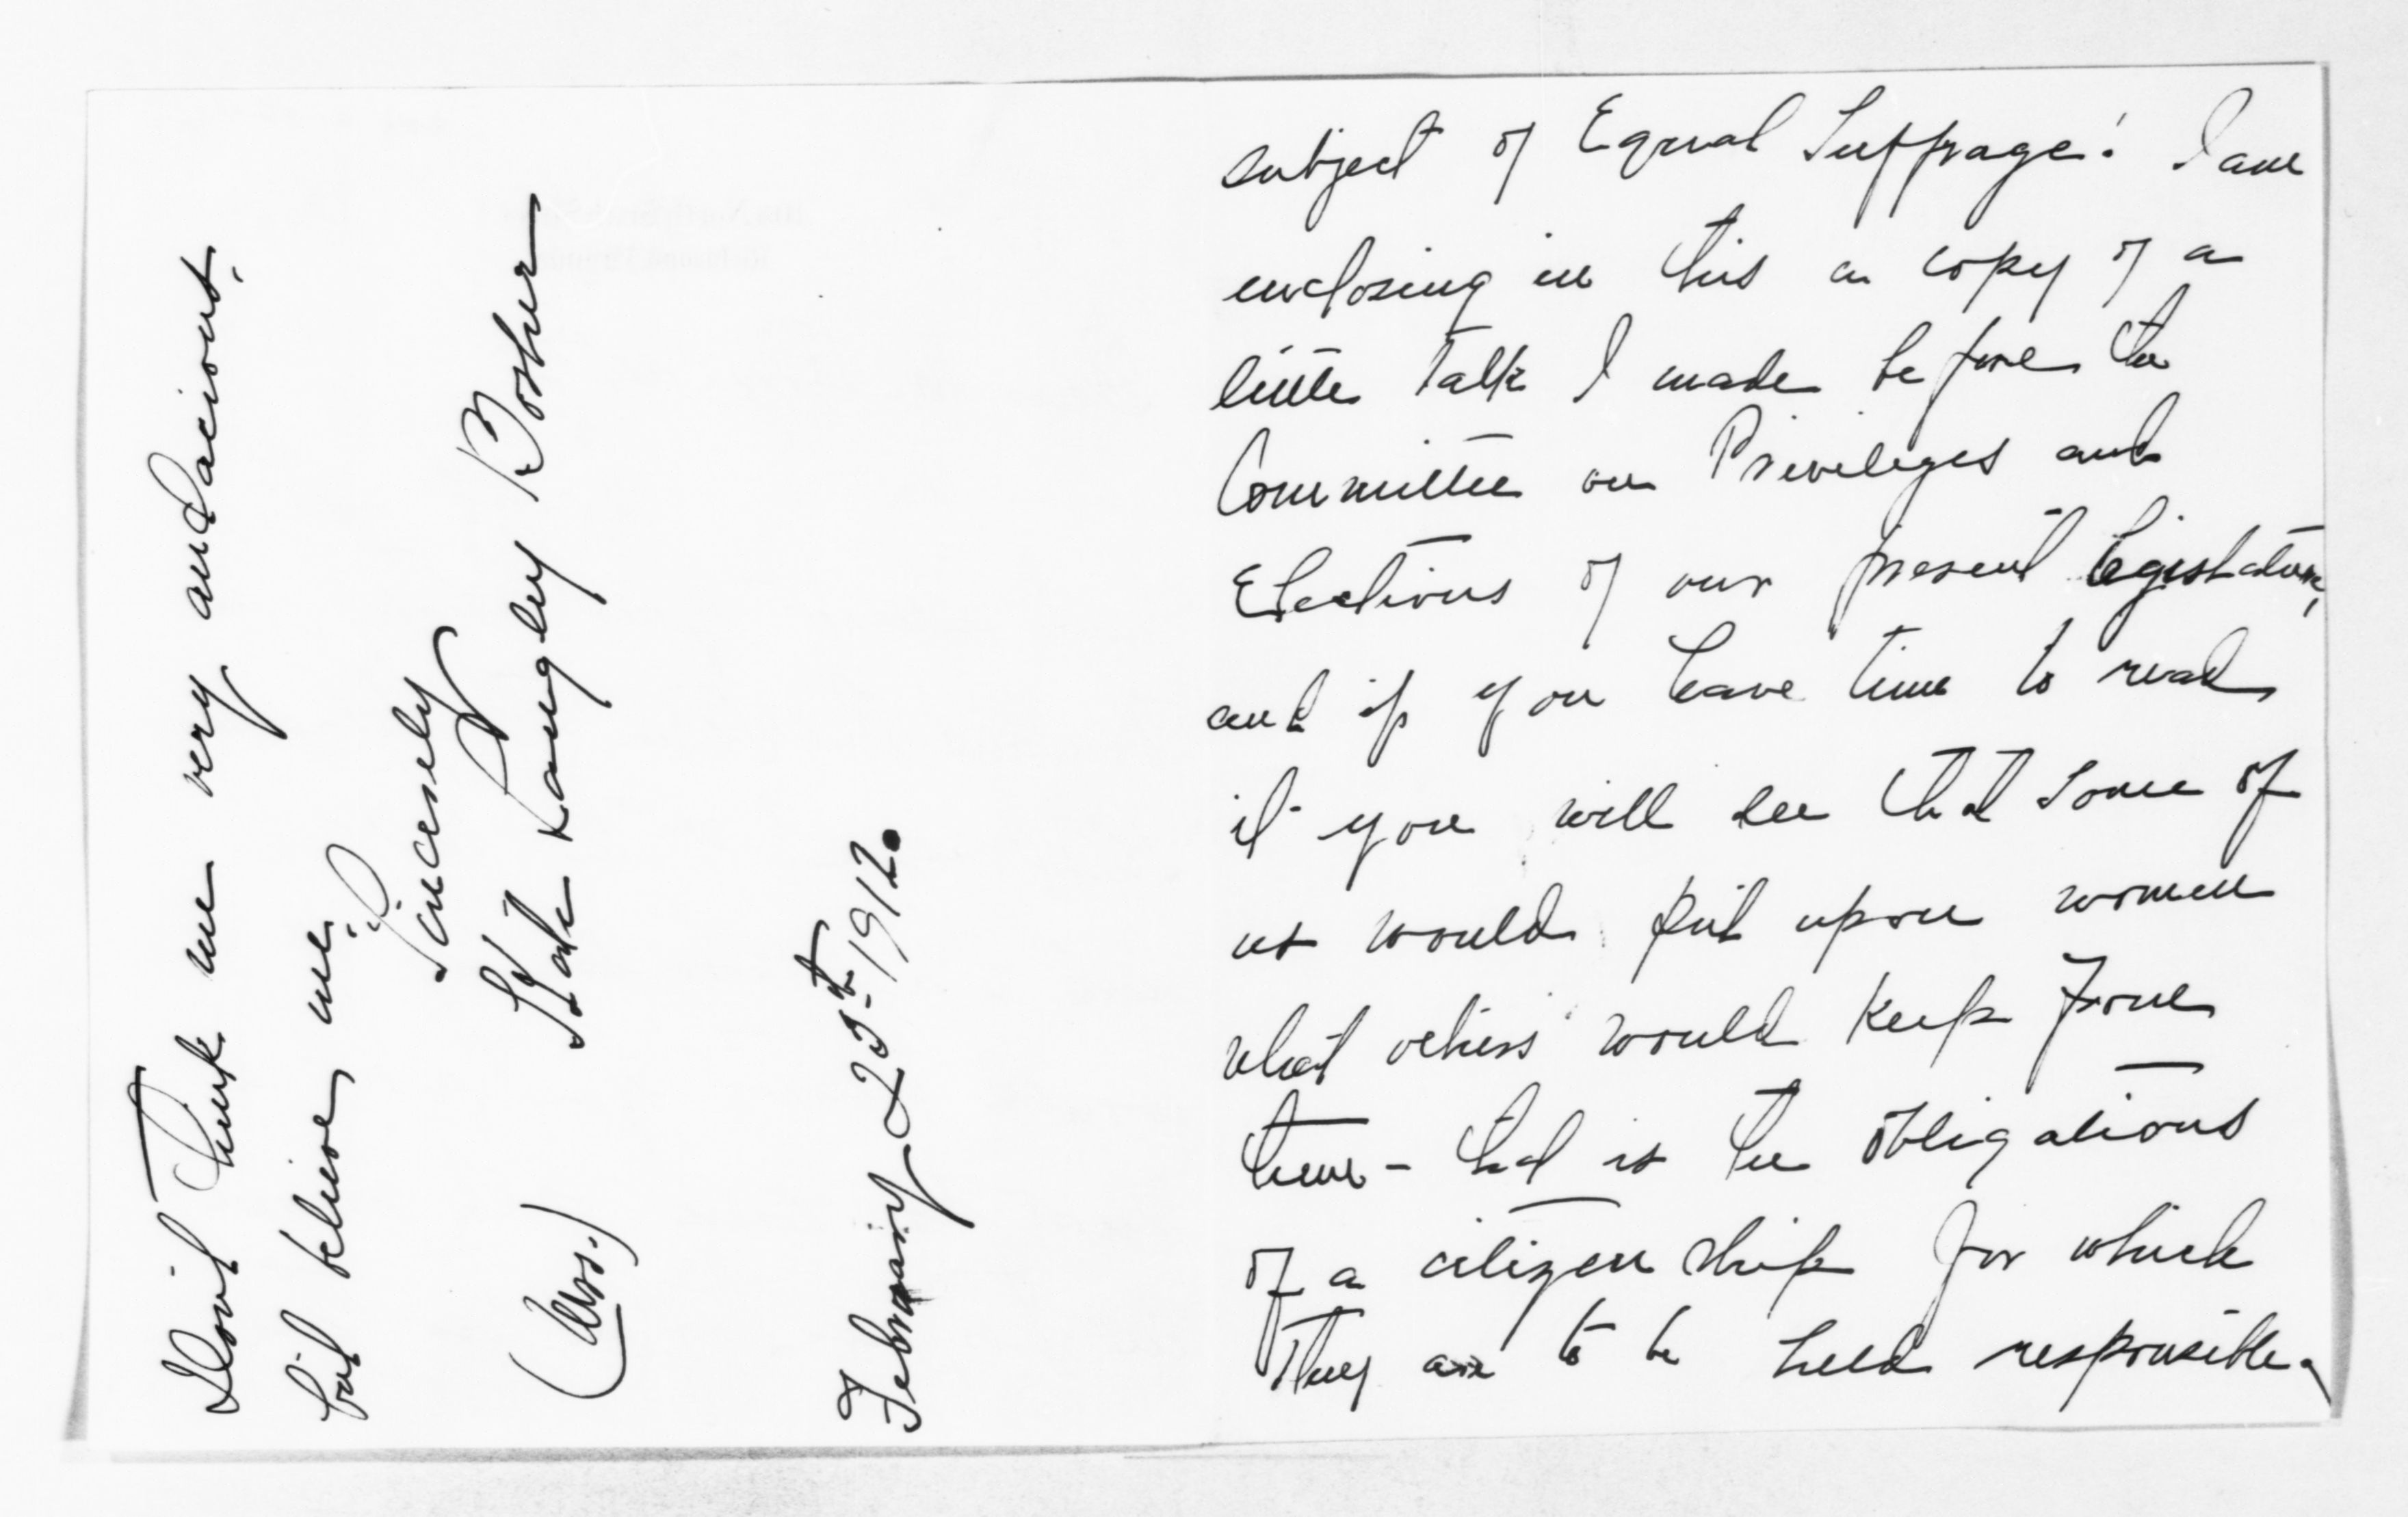 subject of Equal Suffrage! I am
enclosing in this a copy of a
little talk I made before the
Committee on Privileges and
Elections of our present legislature,
and if you have time to read
it you will see that some of
us would put upon women
what others would keep from
them - that is the obligations
of a citizenship for which
They are to be held responsible.
Don't think me very audacious,
but believe me:
Sincerely
Kate Langley Bosher
(Mrs.)
February 25th - 1912.